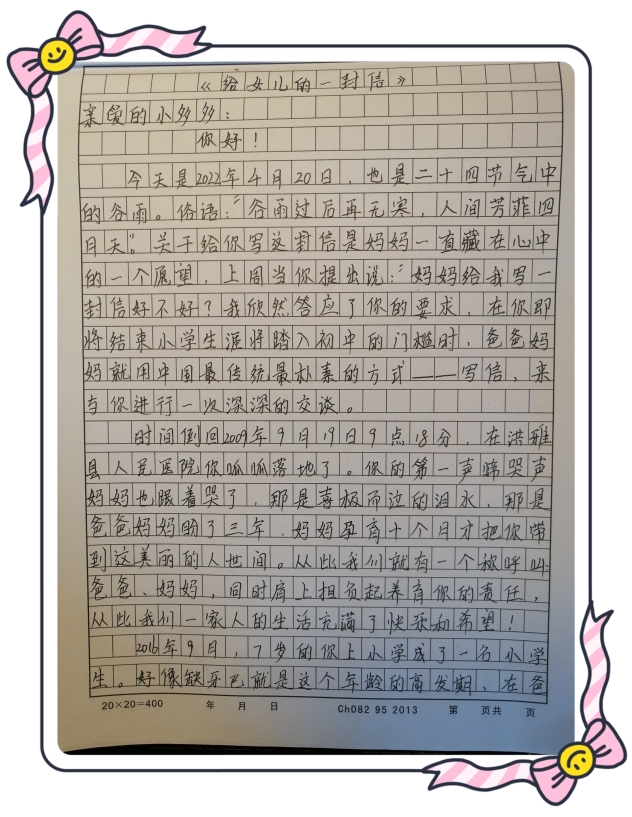 《给女儿的一封信》
亲爱的小多多：
你好！
今天是2022年4月20日，也是二十四节气中
的谷雨。俗语：“谷雨过后再无寒，人间芳菲四
月天”。关于给你写这封信是妈妈一直藏在心中
的一个愿望，上周当你提出说：“妈妈给我写一
封信好不好？我欣然答应了你的要求，在你即
将结束小学生涯将踏入初中的门槛时，爸爸妈
妈就用中国最传统最朴素的方式——写信，来
与你进行一次深深的交谈。
时间倒回2009年9月19日9点18分，在洪雅
县人民医院你呱呱落地了。你的第一声啼哭声
妈妈也跟着哭了，那是喜极而泣的泪水，那是
爸爸妈妈盼了三年，妈妈孕育十个月才把你带
到这美丽的人世间。从此我们就有一个称呼叫：
爸爸、妈妈，同时肩上担负起养育你的责任，
从此我们一家人的生活充满了快乐和希望！
2016年9月，7岁的你上小学成了一名小学
生。好像缺牙巴就是这个年龄的高发期，在爸
20×20=400 年 月 日 Ch082 95 2013 第 页共 页